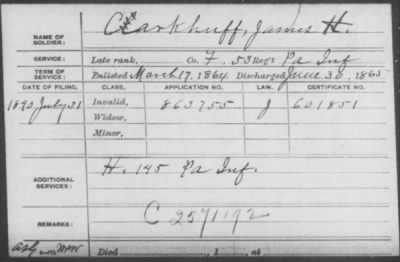 NAME OF SOLDIER: Clarkhuff, James H.
SERVICE: Late rank, Co. F, 53 Reg't Pa Inf
TERM OF SERVICE: Enlisted March 17, 1864 Discharged June 30, 1865
DATE OF FILING. CLASS. APPLICATION NO. LAW. CERTIFICATE NO.
1890 July 31 Invalid, 863755 J 601851
Widow,
Minor,
ADDITIONAL SERVICES: H. 145 Pa Inf.
REMARKS: C 2571192
Died , 1 , at